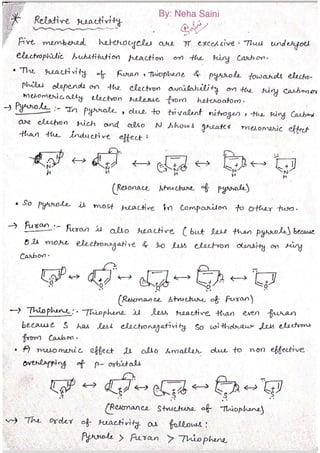 By: Neha Saini
* Relative reactivity
Five membered heterocycles are π excessive. Thus undergoes
electrophilic substitution reaction on the ring carbon.
• The reactivity of Furan, Thiophene & pyrrole towards electro-
philes depends on the electron availability on the ring Carbons
mesomerically electron release from heteroatom.
→ Pyrrole :- In pyrrole, due to trivalent nitrogen, the ring Carbons
are electron rich and also N shows greater mesomeric effect
than the inductive effect :
N H
N H
N H
N H
N H
(Resonance structure of pyrrole)
• So pyrrole is most reactive in Comparison to other two.
→ Furan :- Furan is also Reactive (but less than pyrrole) because
O is more electronegative & so less electron density on ring
Carbon.
(Resonance structure of Furan)
→ Thiophene :- Thiophene is less reactive than even furan
because S has less electronegativity so withdraw less electrons
from Carbon.
• A mesomeric effect is also smaller due to non effective
overlapping of p- orbitals
(Resonance structure of Thiophene)
→ The order of reactivity as follows :
Pyrrole > Furan > Thiophene